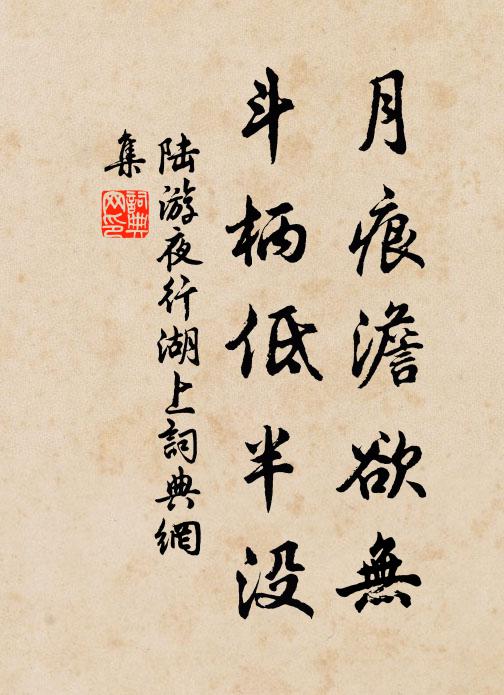 月痕澹欲無
斗柄低半没
陆游夜行湖上詞典網
集
詞典
网印